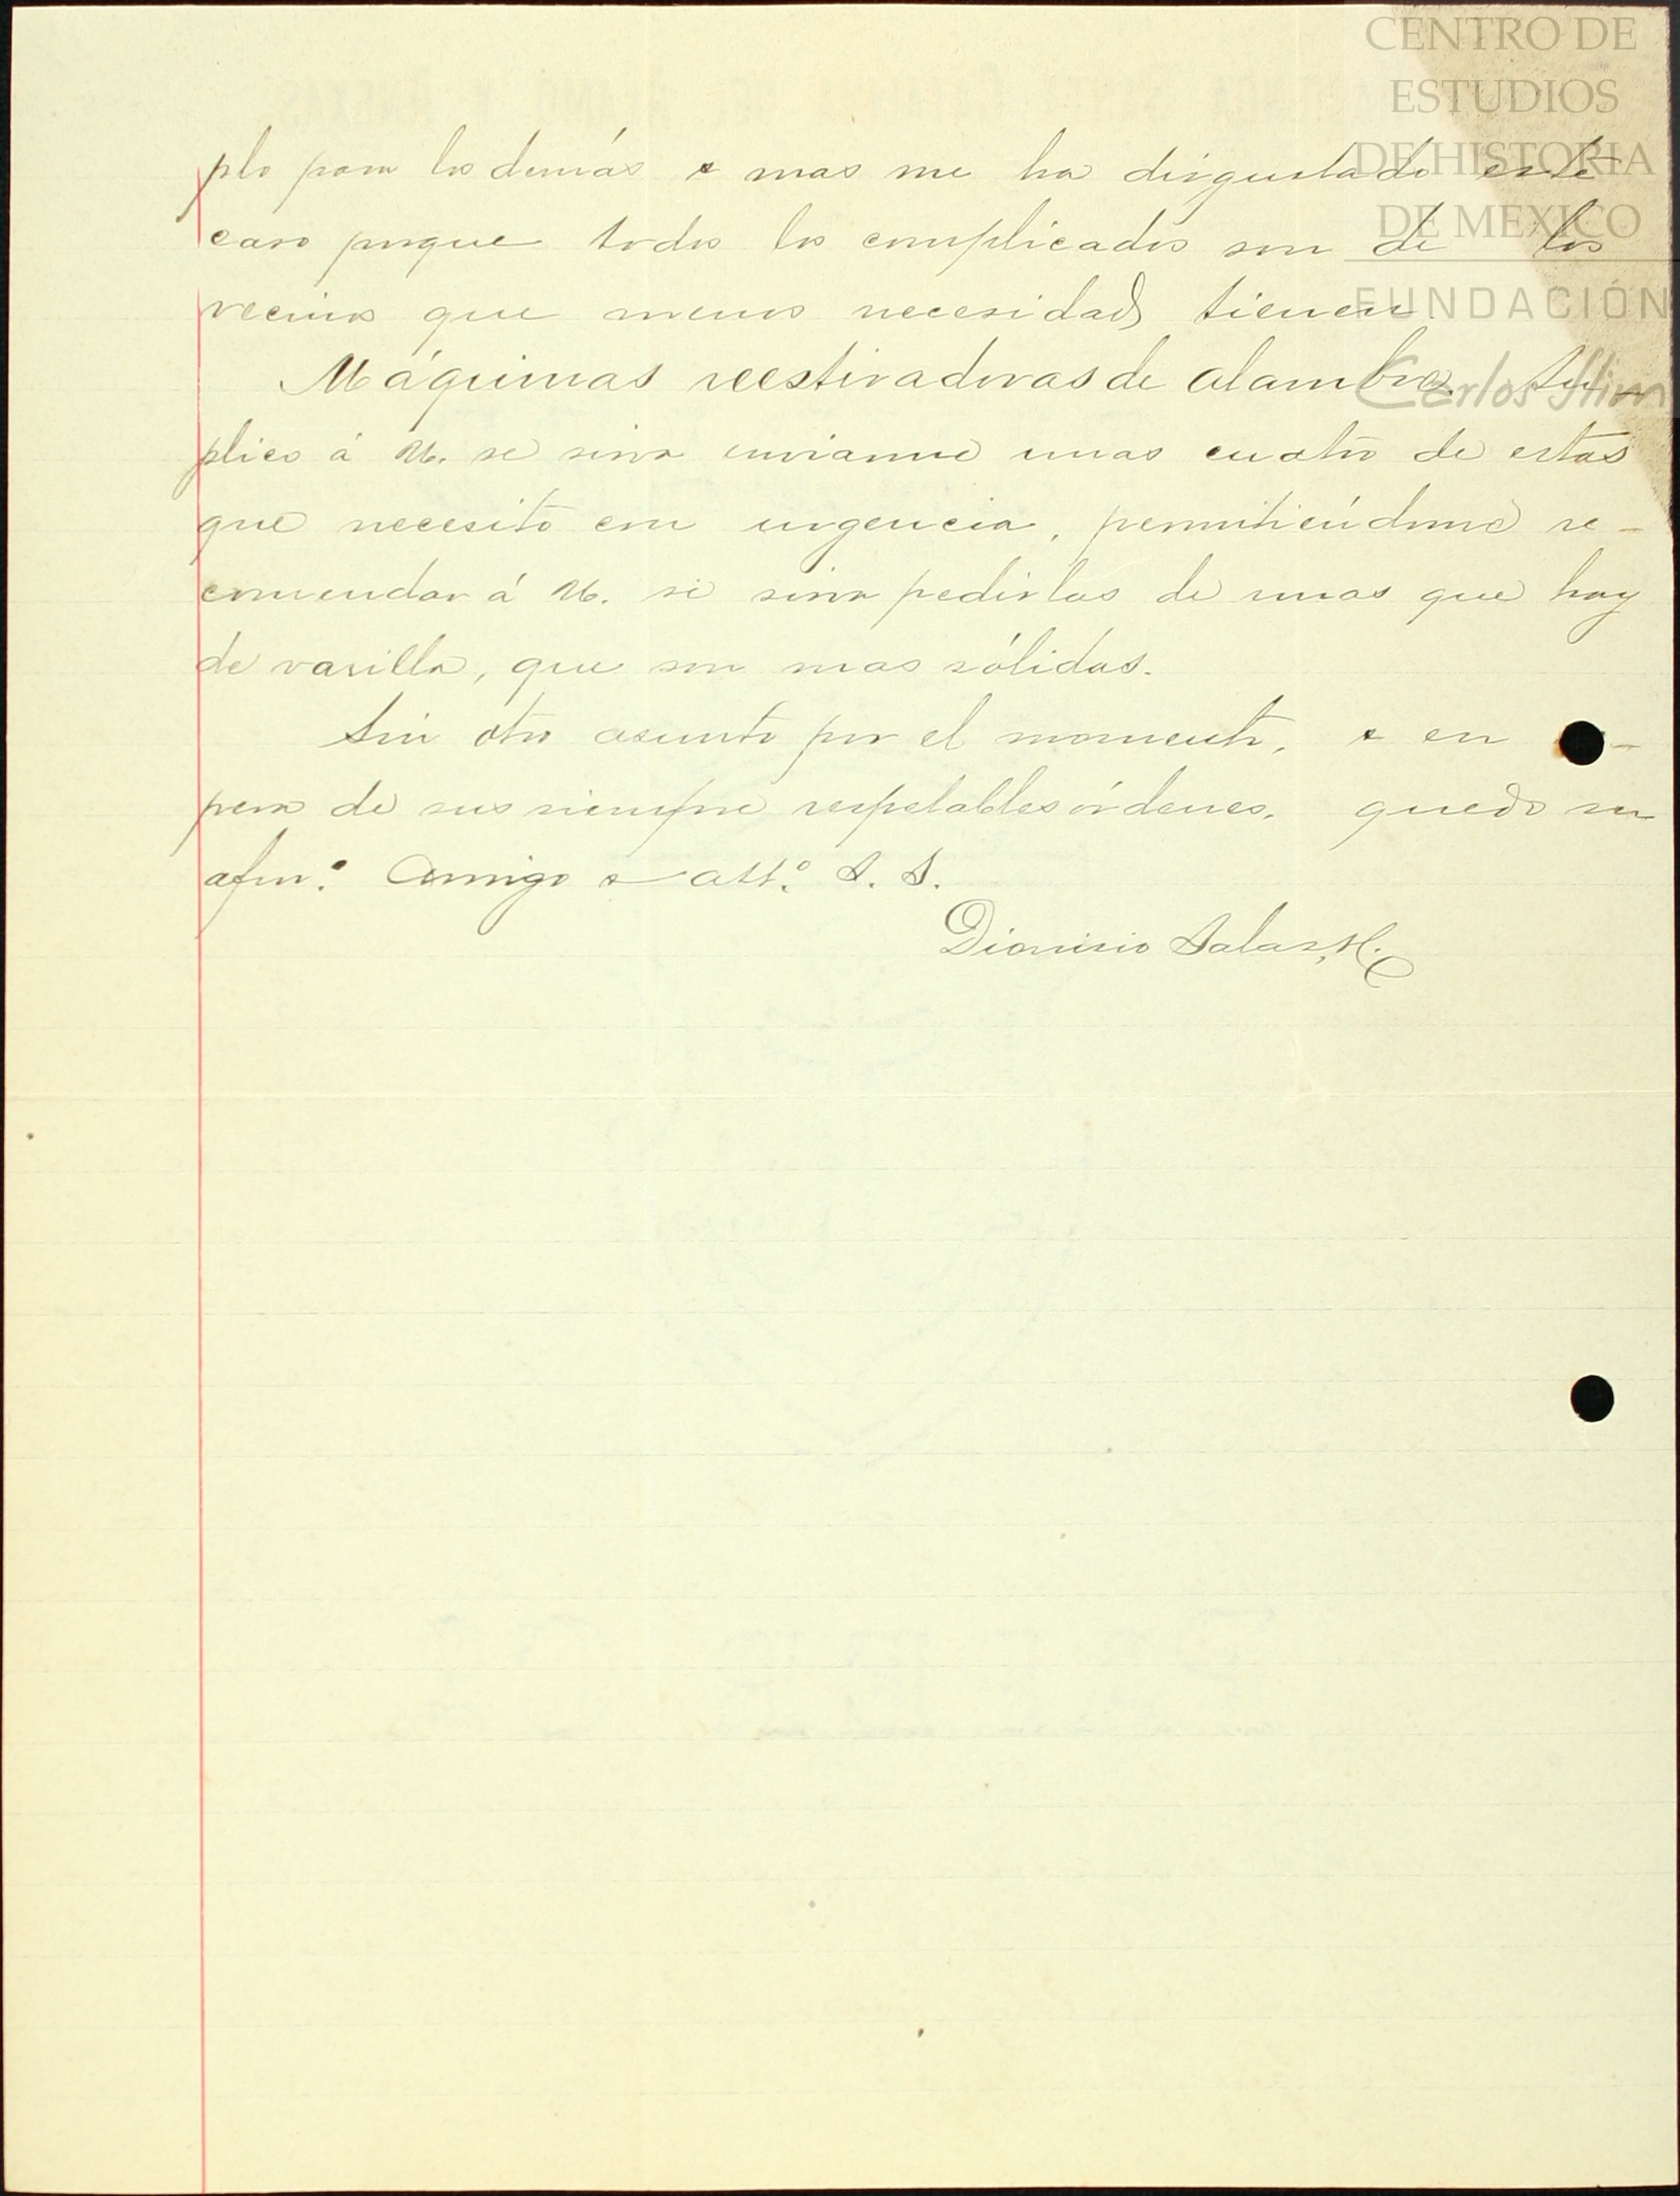 CENTRO DE
ESTUDIOS
DE HISTORIA
DE MÉXICO
FUNDACIÓN
Carlos Slim
plo para los demás y mas me ha disgustado este
caso porque todos los complicados son de los
vecinos que menos necesidad tienen
Máquinas reestiradoras de alambre. Su
plico á U. se sirva enviarme unas cuatro de estas
que necesito con urgencia, permitiéndome re-
comendar á U. se sirva pedirlas de unas que hay
de varilla, que son mas sólidas.
Sin otro asunto por el momento, y en -
pera de sus siempre respetables órdenes, quedo su
afmo. Amigo y atto. S. S.
Dionisio Salas, H.